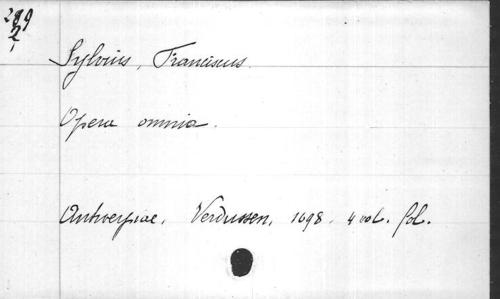 289
2,
Sylvius, Franciscus.
Opera omnia.
Antverpiae, Verdussen, 1698. 4 vol. fol.